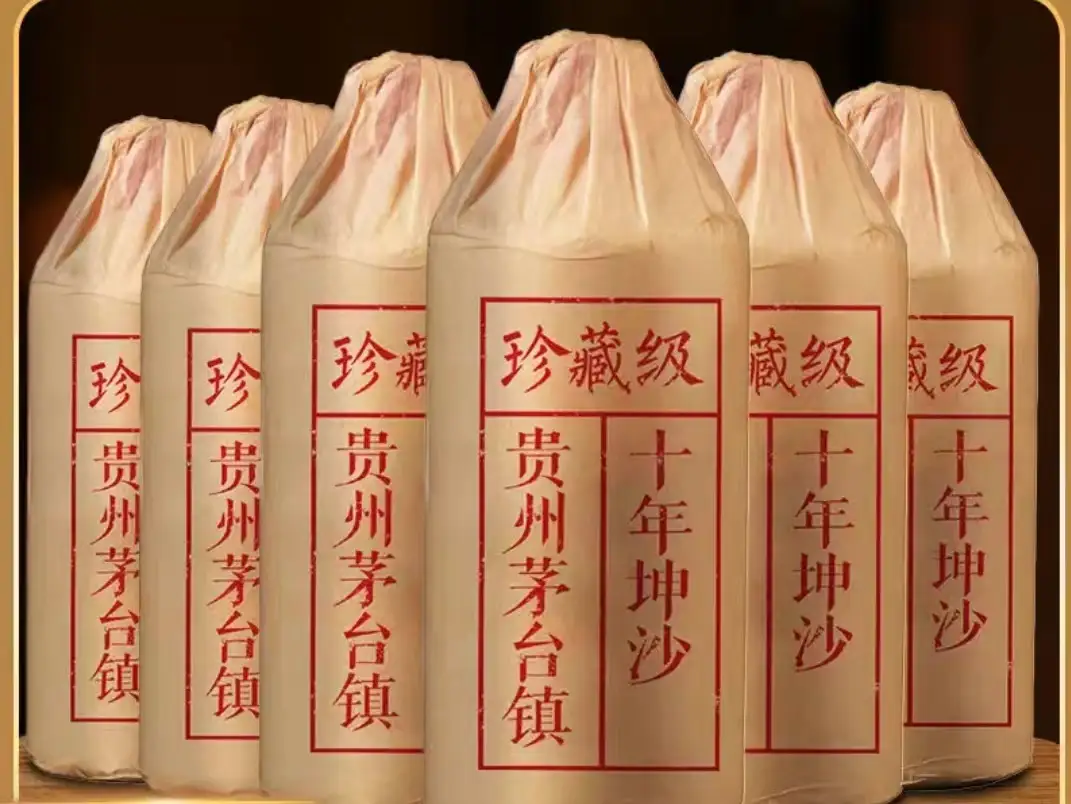 珍
贵州茅台镇
珍
贵州茅台镇
珍藏
贵州茅台镇
珍藏级
贵州茅台镇
十年坤沙
藏级
十年坤沙
藏级
十年坤沙